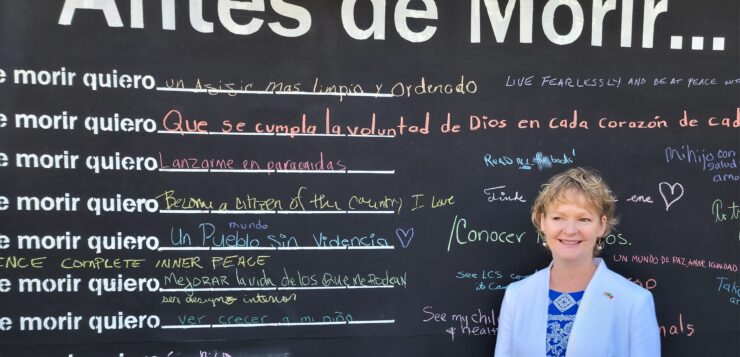 Antes de Morir...
e morir quiero un Ajijic mas limpio y Ordenado
LIVE FEARLESSLY AND BE AT PEACE WITH
e morir quiero Que se cumpla la voluntad de Dios en cada corazón de cad
e morir quiero Lanzarme en paracaidas
READ ALL the books!
mi hijo con salud
e morir quiero Become a citizen of the country I love
e morir quiero Un Pueblo Sin Violencia
mundo
/Conocer
NCE COMPLETE INNER PEACE
UN MUNDO DE PAZ, AMOR, IGUALDAD
e morir quiero MEJORAR la vida de los Que me Rodean
ser
interior
SEE LCS
Take
e morir quiero ver crecer a mi niño
See my chil
& health